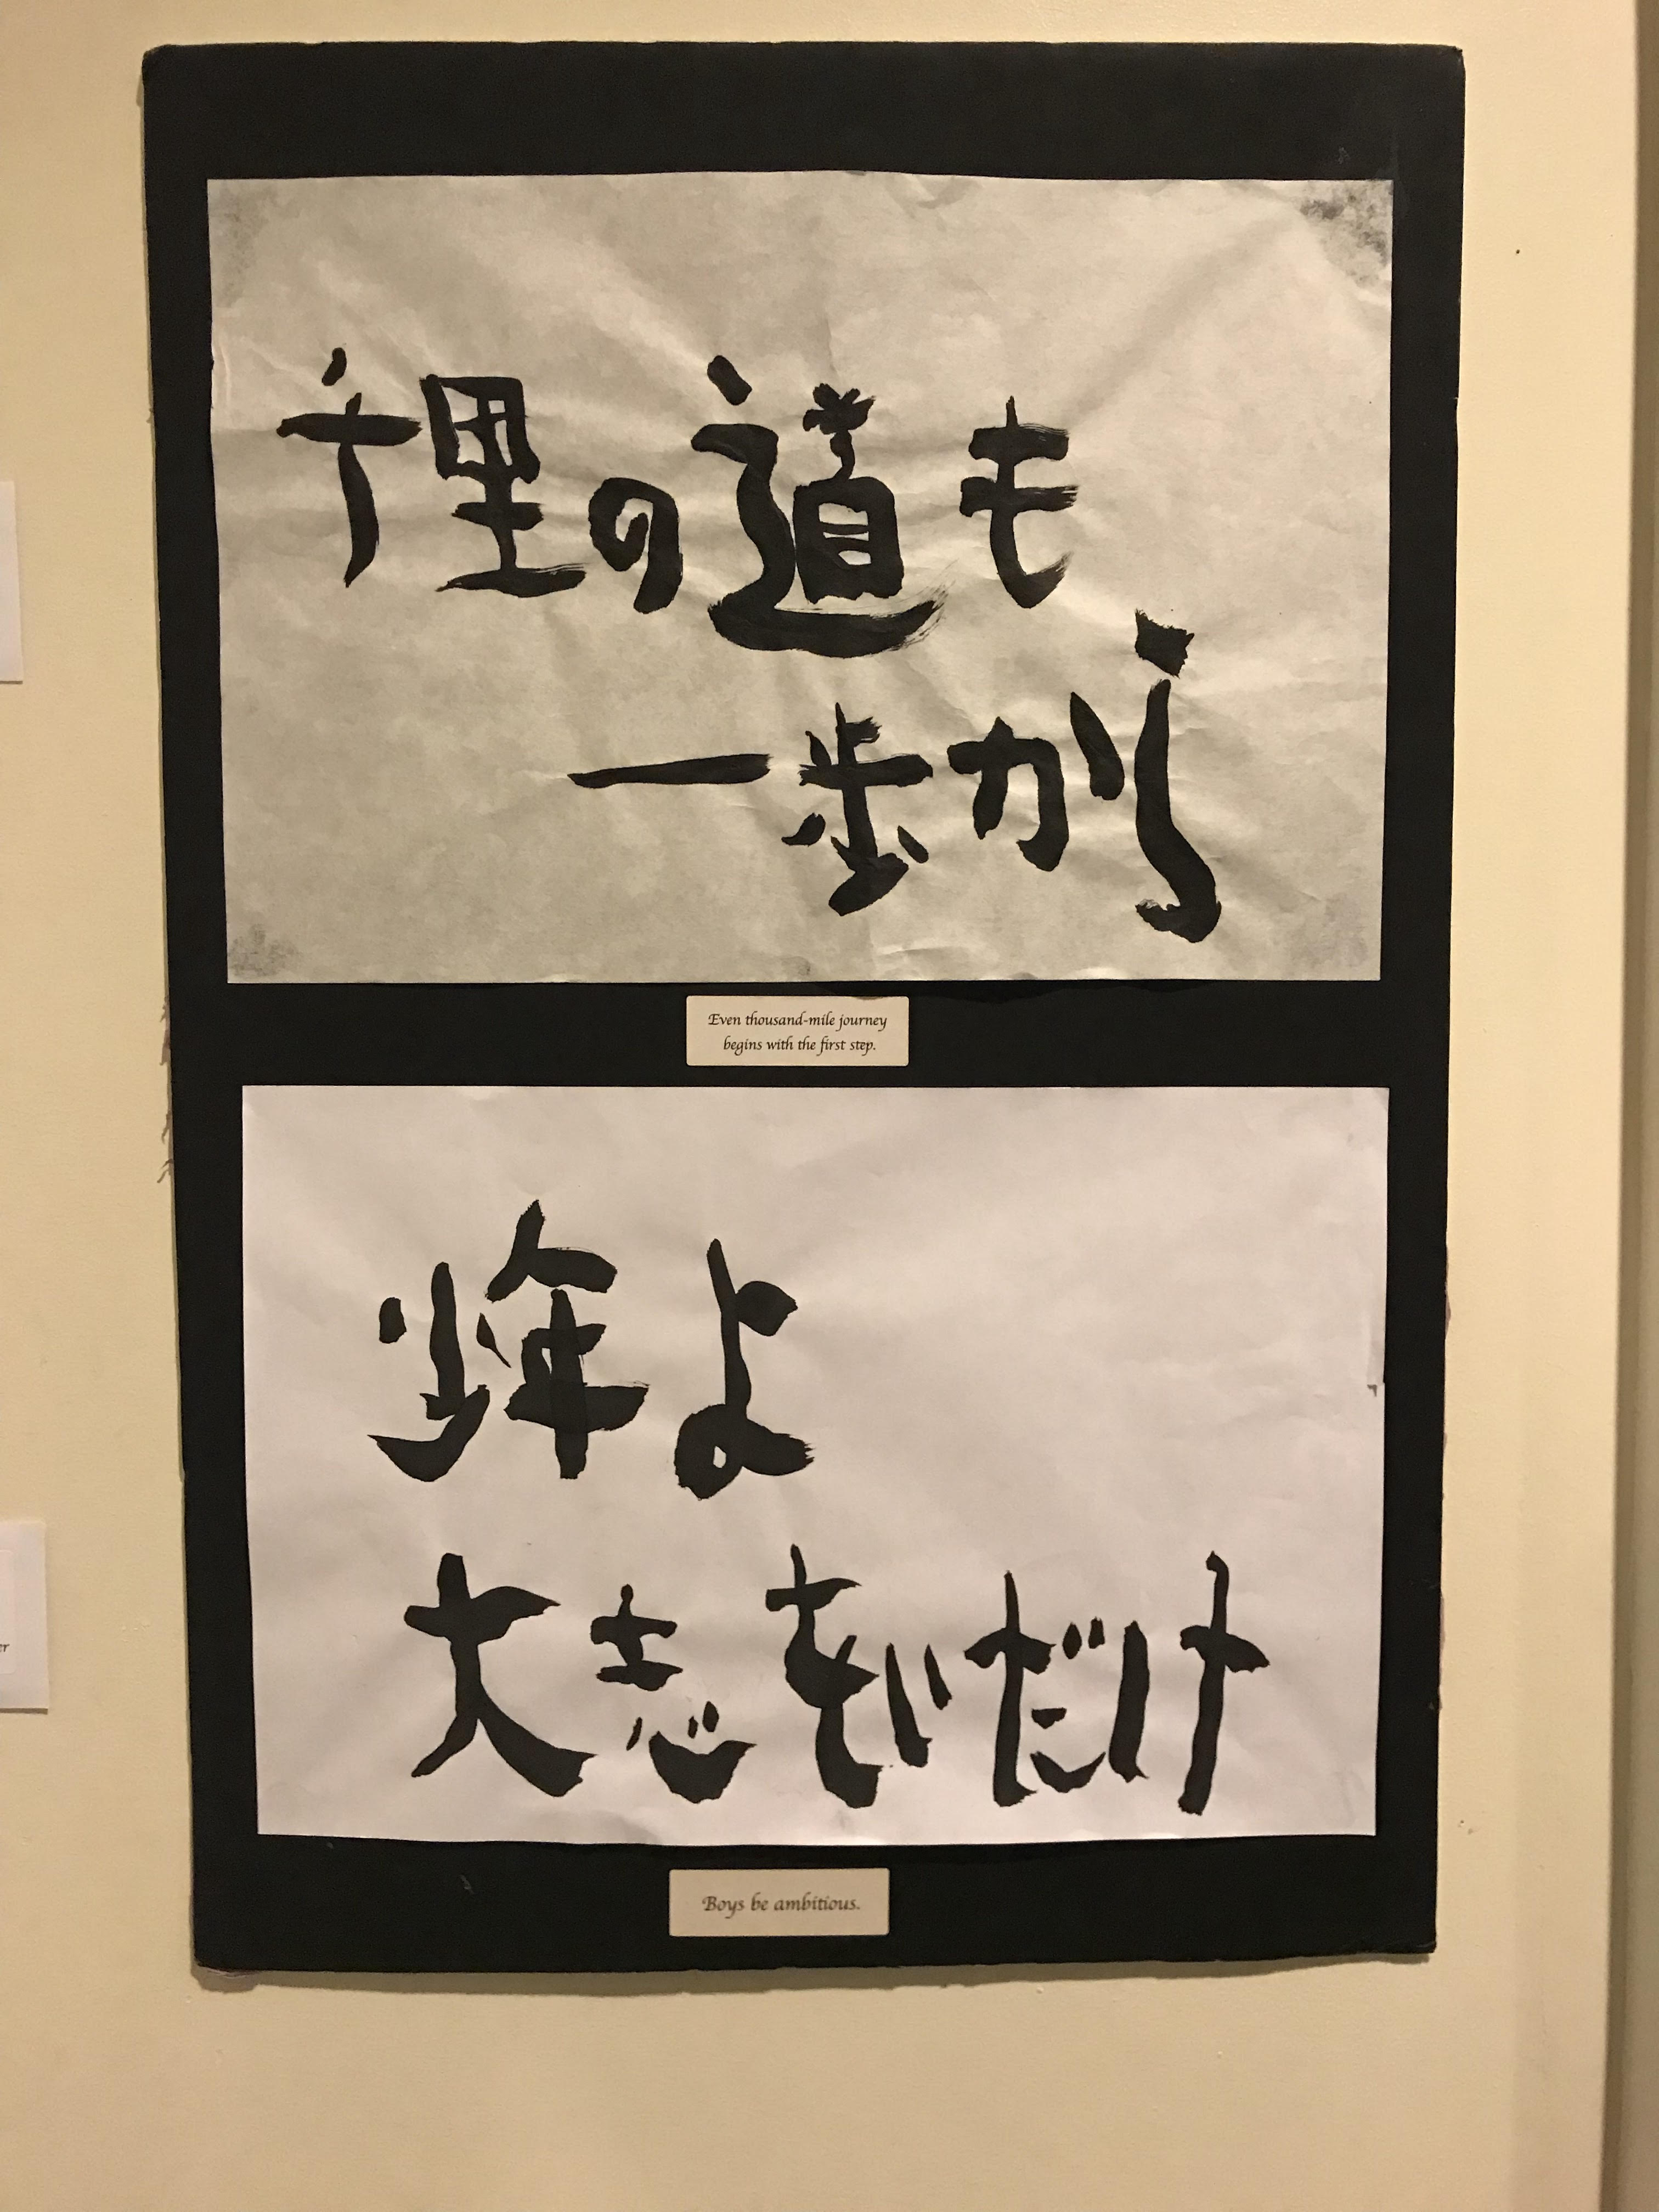 千里の道も
一歩から
Even thousand-mile journey
begins with the first step.
少年よ
大志をいだけ
Boys be ambitious.
er